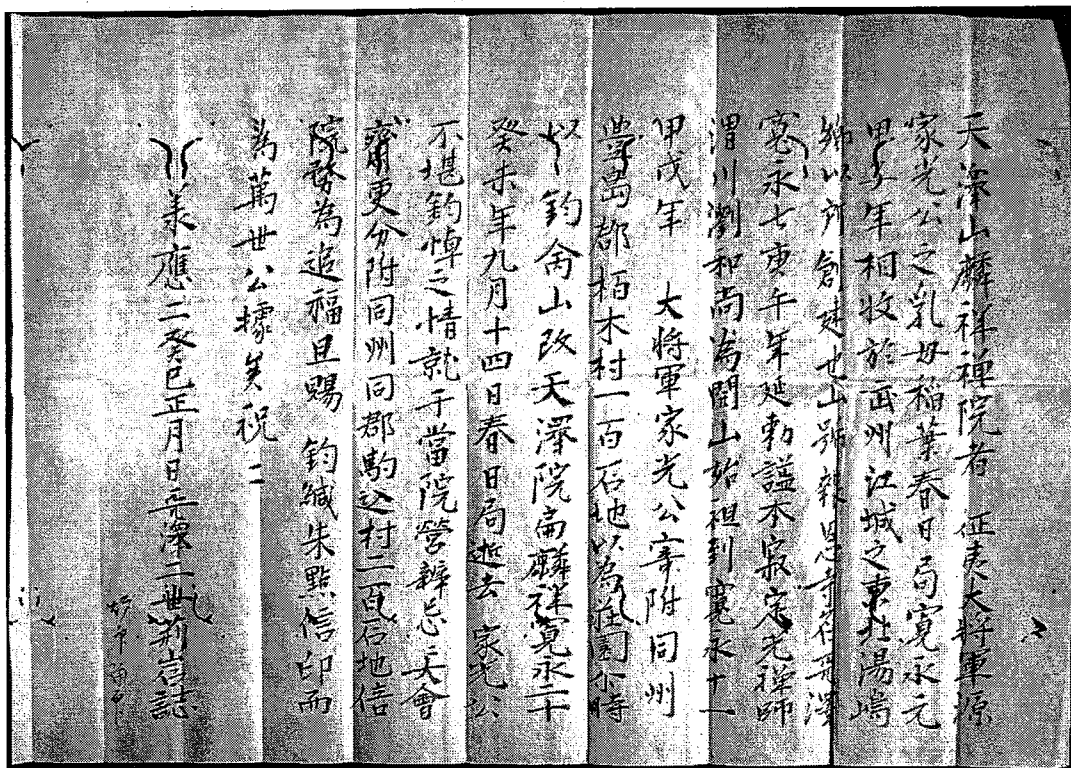 天澤山麟祥禅院者　征夷大将軍源
家光公之乳母稲葉春日局寛永元
甲子年相攸於武州江城之東北湯嶋
郷以肇創建也山号報恩寺名天澤
寛永七庚午年延勅諡不寂定光禅師
渭川瀏和尚為開山始祖到寛永十一
甲戌年　大将軍家光公寄附同州
豊島郡栢木村一百石地以為荘園尔時
以　鈞命山改天澤院扁麟祥寛永二十
癸未年九月十四日春日局逝去　家光公
不堪鈞悼之情就于當院營辨忌之大會
齋更分附同州同郡駒込村二百石地倍
院務為追福且賜　鈞緘朱點信印而
為萬世公據矣祝々
承應二癸巳正月日天澤二世荊岩誌